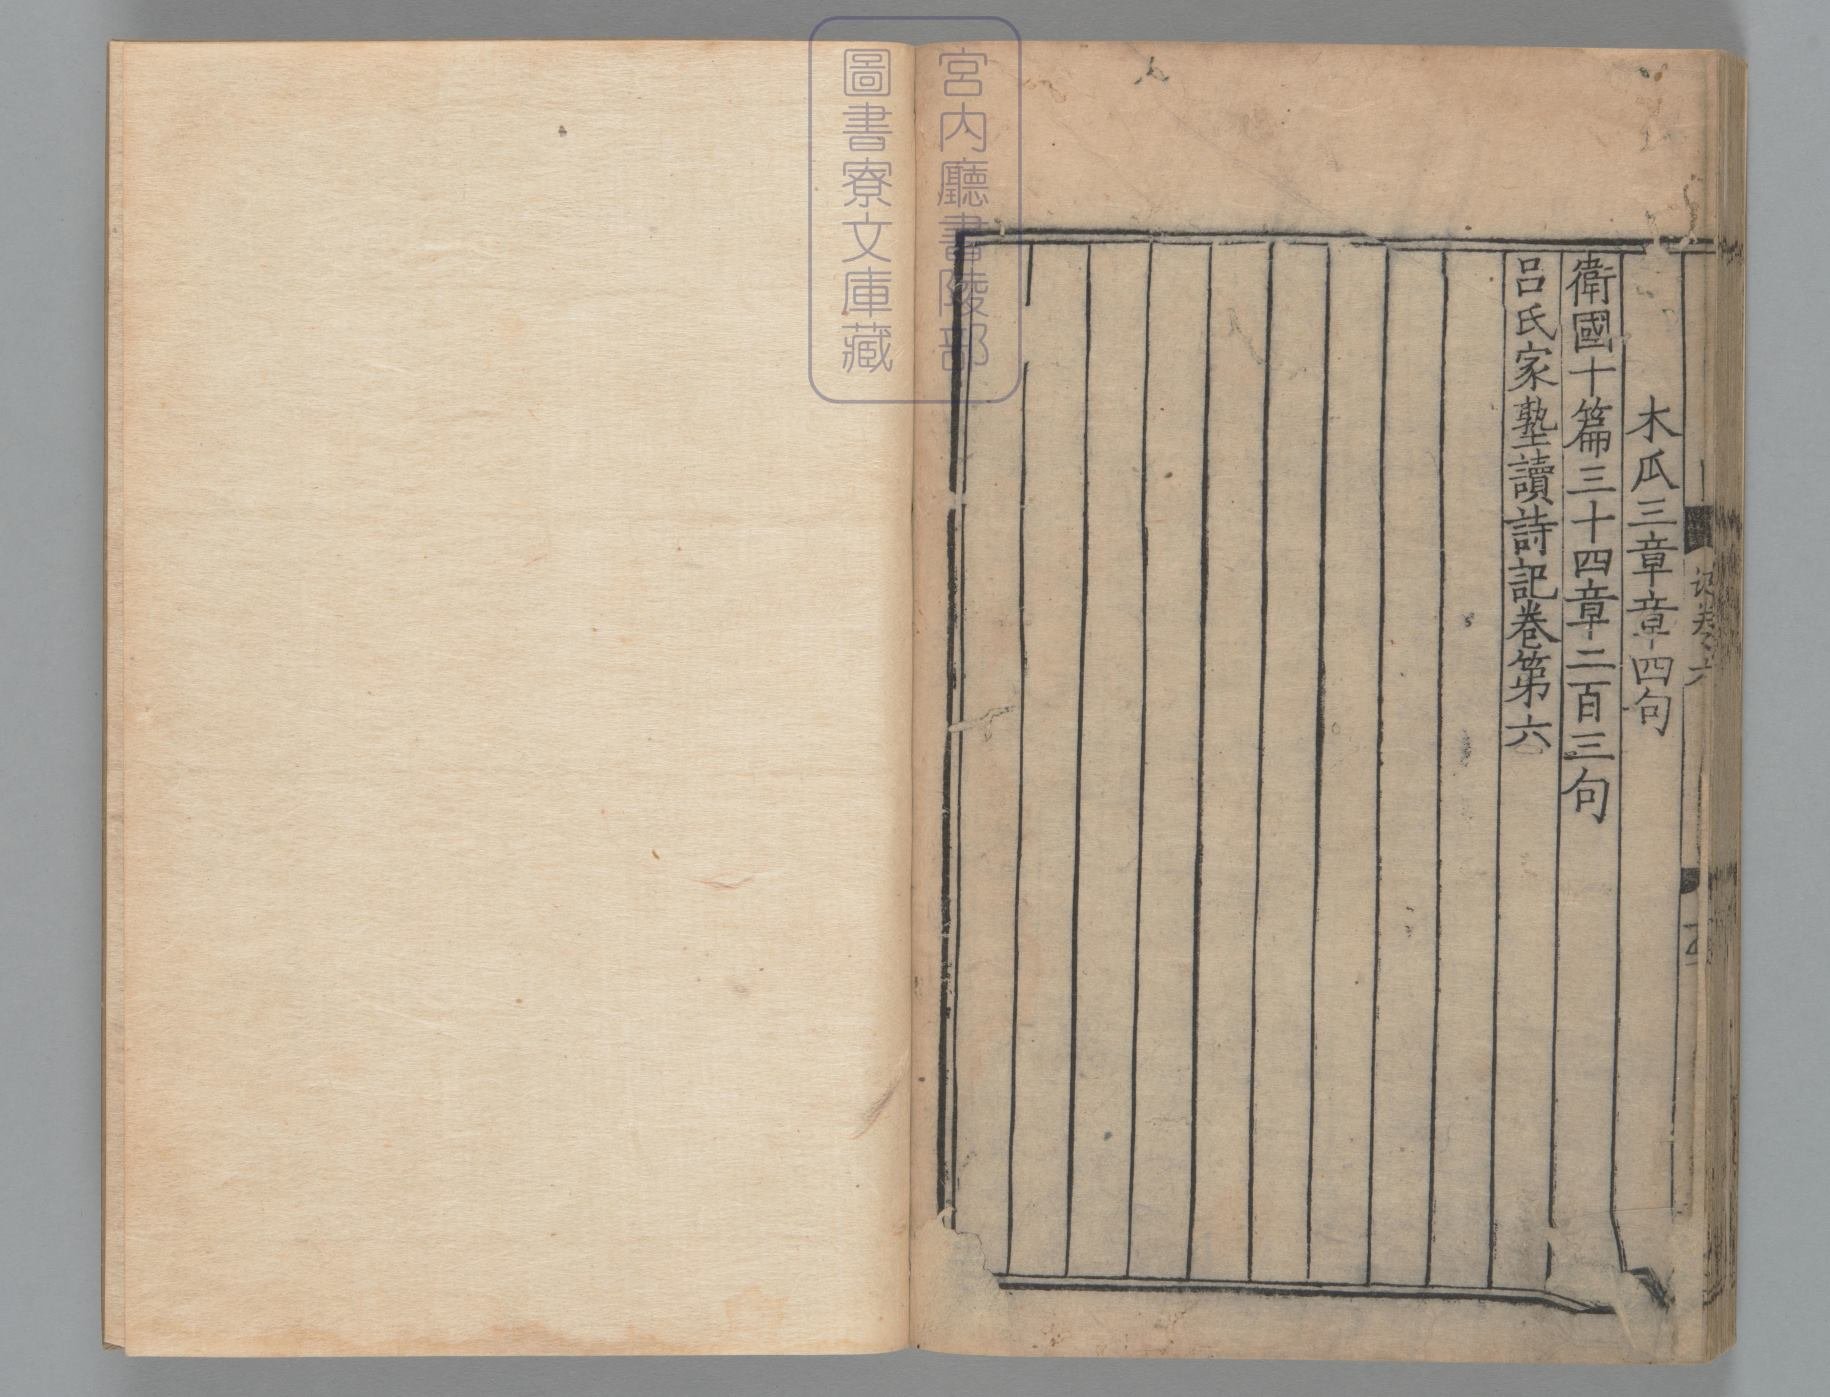 木瓜三章章四句
衛國十篇三十四章二百三句
呂氏家塾讀詩記卷第六
記卷六
宮内廳書陵部
圖書寮文庫藏